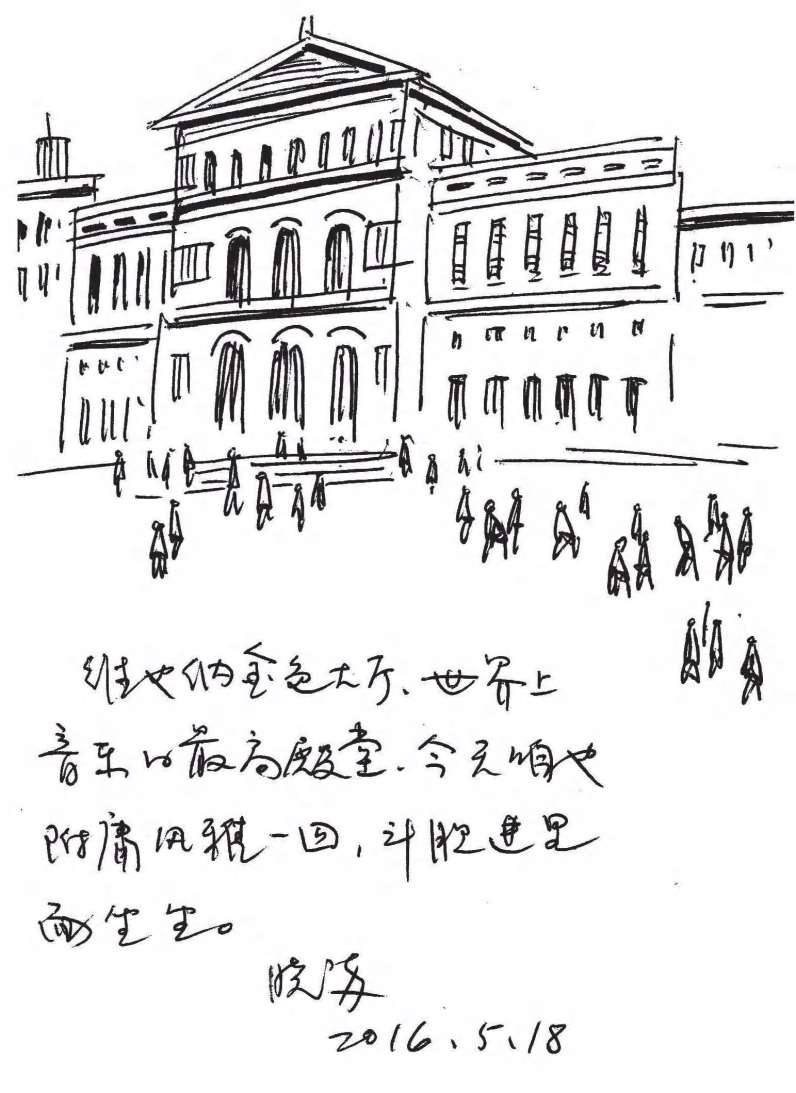 维也纳金色大厅、世界上
音乐的最高殿堂.今天咱也
附庸风雅一回,斗胆进里
面坐坐。
晓海
2016.5.18